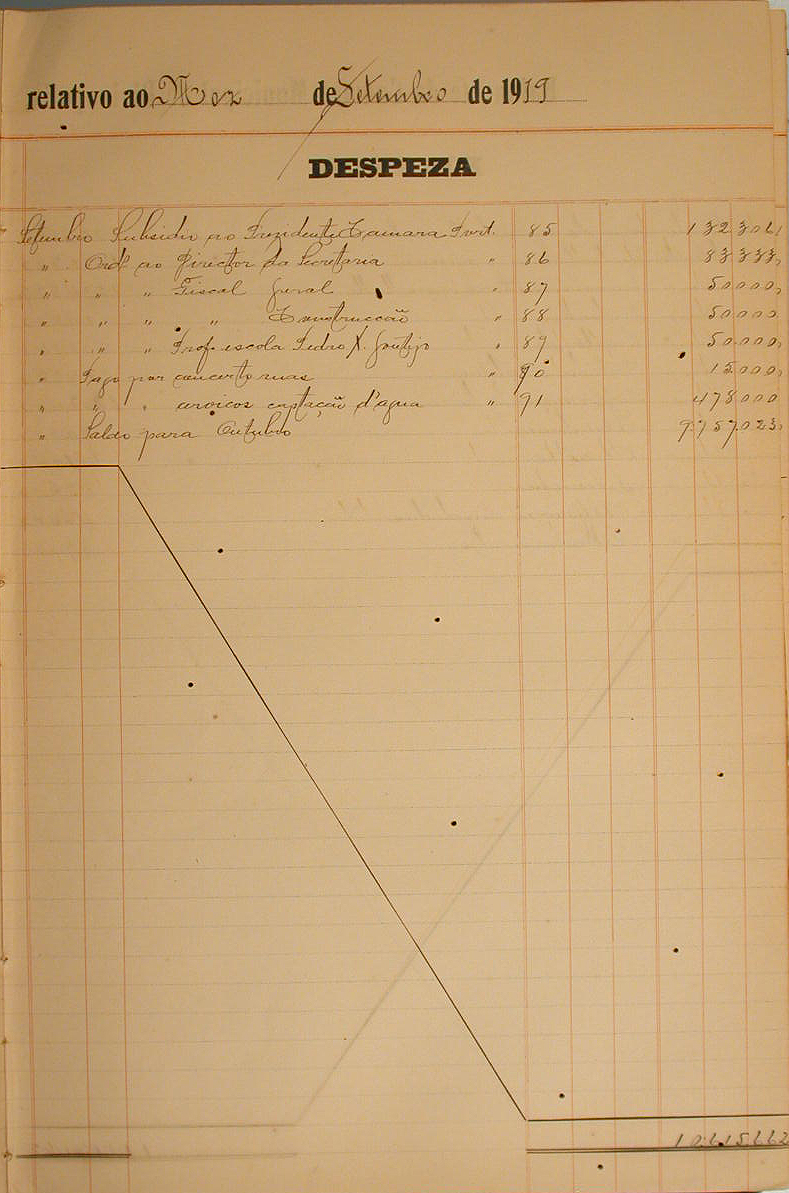 relativo ao Mez de Setembro de 1919
DESPEZA
Setembro Subsidio ao Prezidente Camara Port. 85
" Ord. ao Director da Secretaria " 86 83333,
" " " Fiscal Geral " 87 50000,
" " " " Construcção " 88 50000
" " " Prof. escola Pedro X. " 89 50000,
" Pago por concerto ruas " 90 15000,
" " " captação d'agua " 91 478000
" Saldo para Outubro